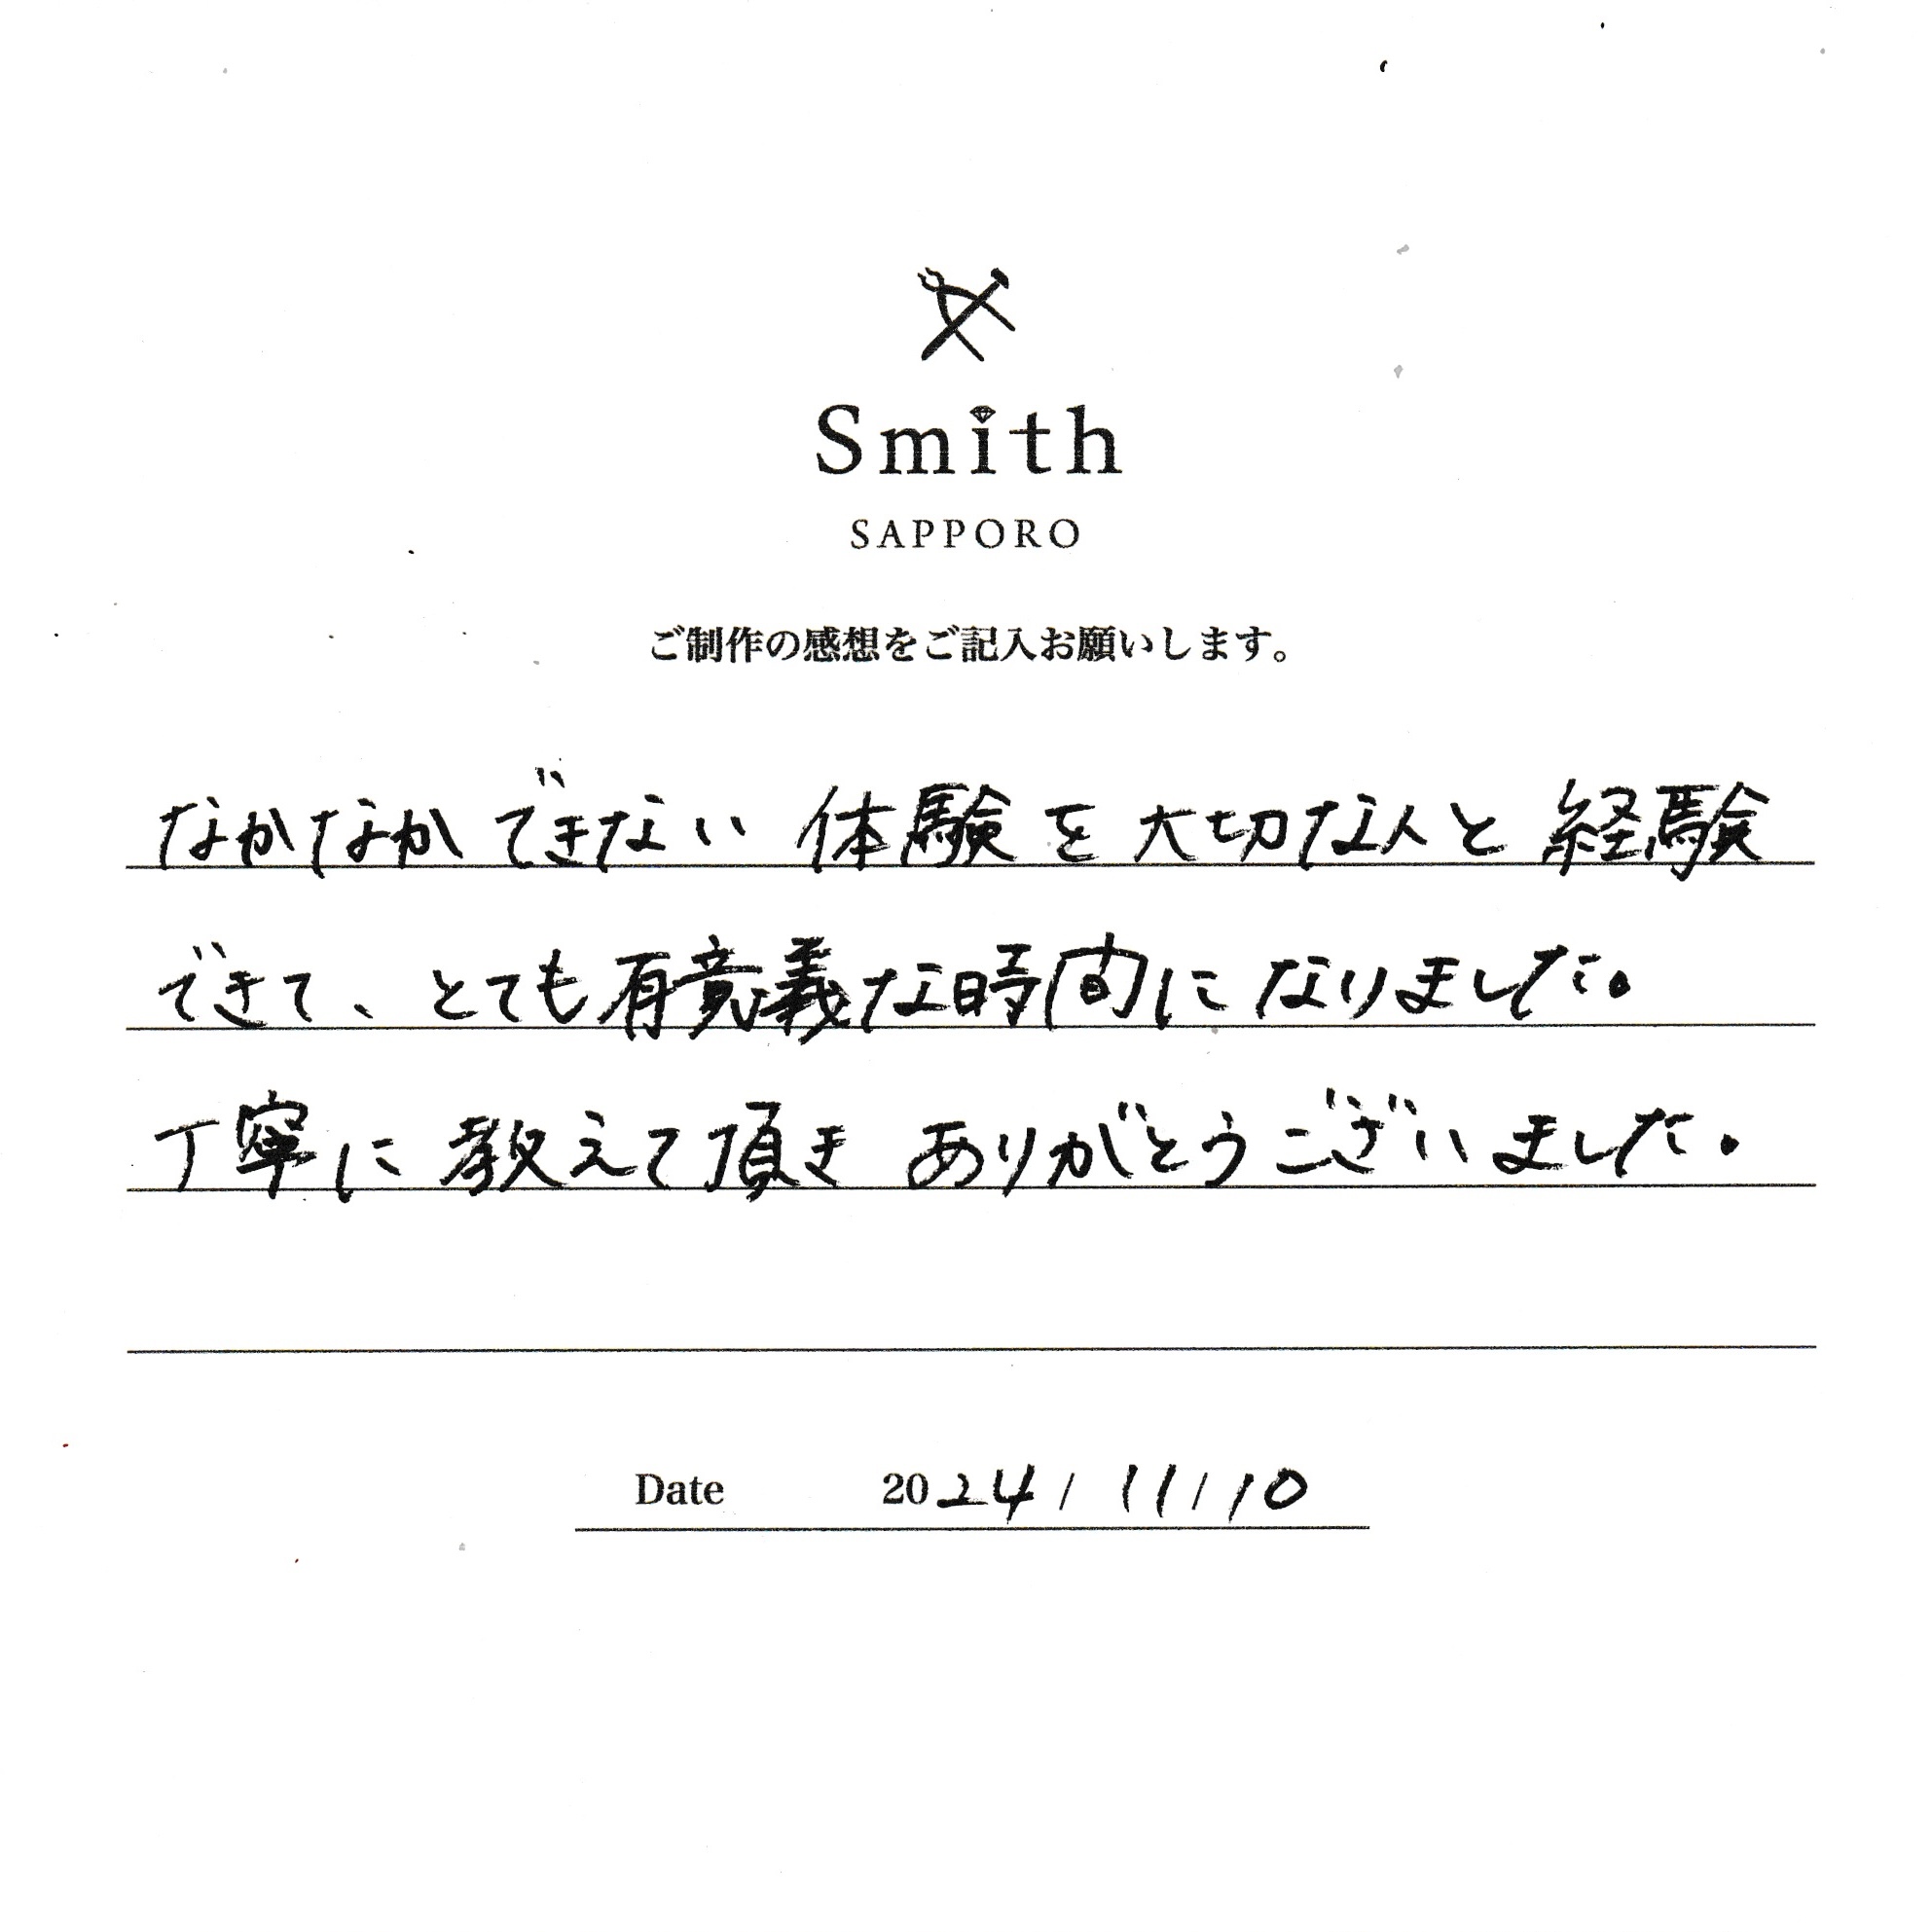 Smith
SAPPORO
ご制作の感想をご記入お願いします。
なかなかできない 体験を大切な人と経験
できて、とても有意義な時間になりました。
丁寧に教えて頂き ありがとうございました。
Date 2024/11/10